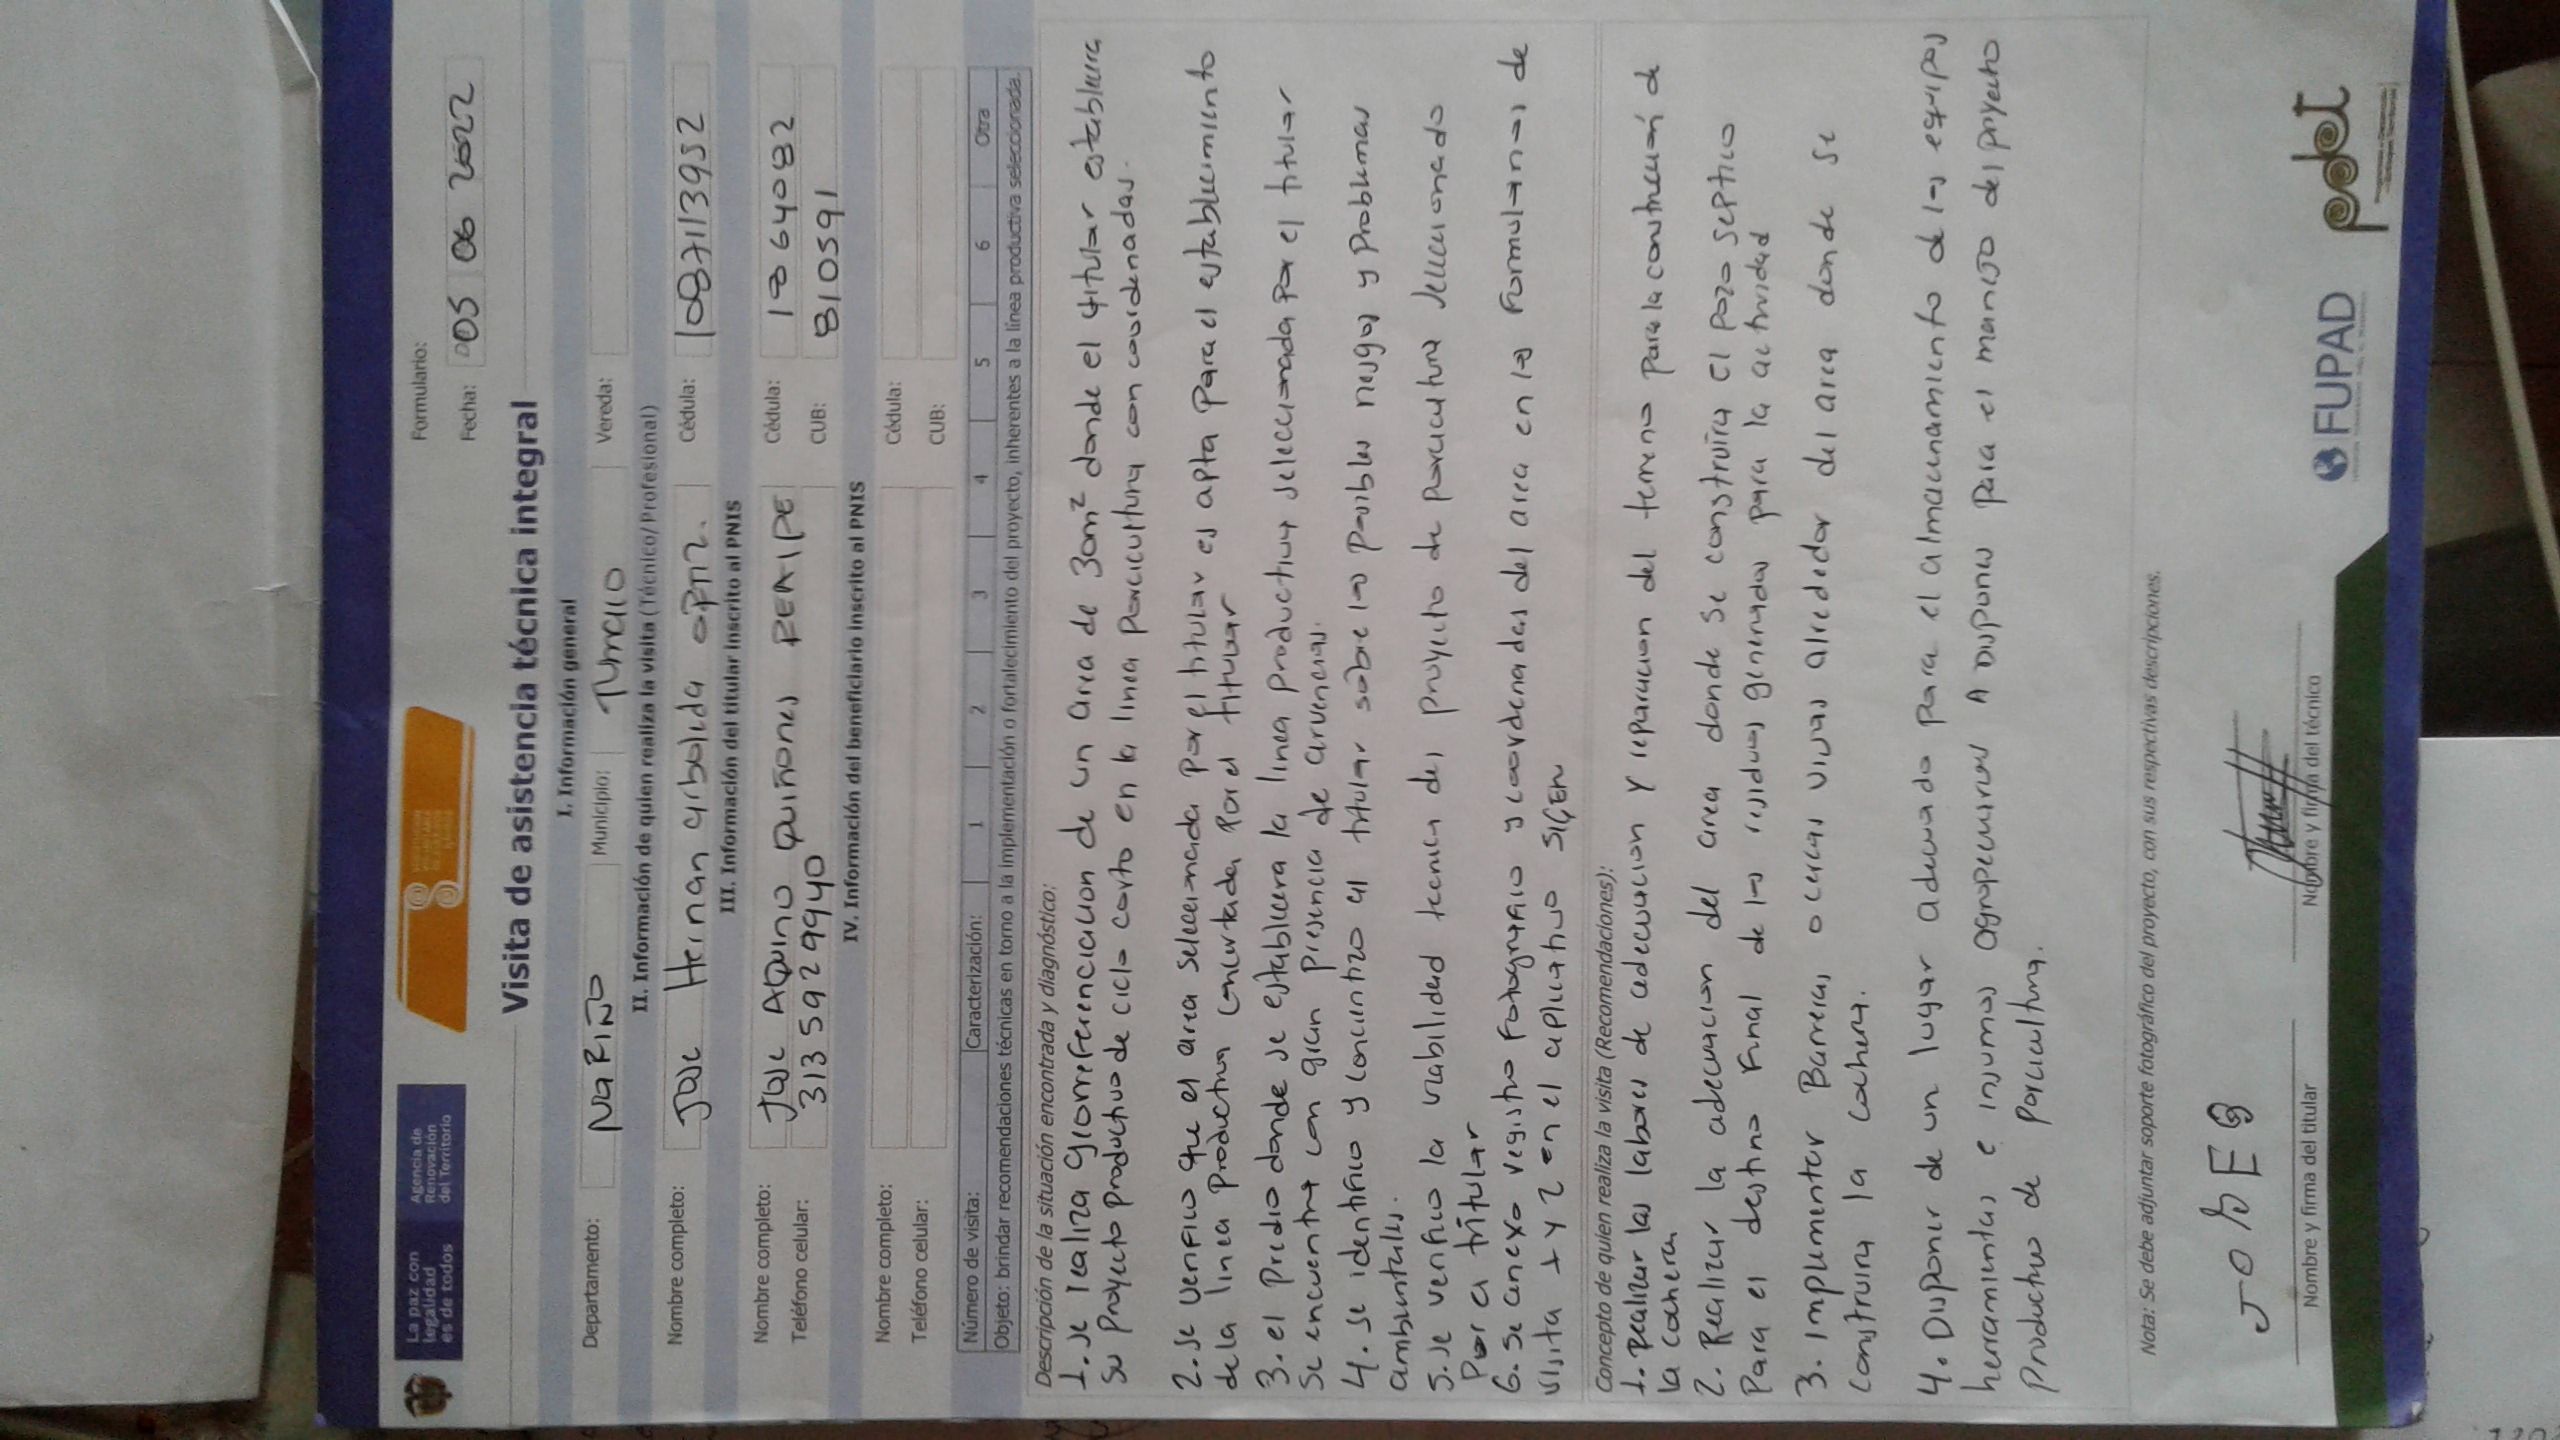 La paz con
legalidad
es de todos
Agencia de
Renovación
del Territorio
Formulario:
Fecha: 05 06 2022
Visita de asistencia técnica integral
I. Información general
Departamento: NaRIÑO Municipio: TUMaco Vereda:
II. Información de quien realiza la visita (Técnico/Profesional)
Nombre completo: Jose Hernan arboleda ortiz. Cédula: 1087113952
III. Información del titular inscrito al PNIS
Nombre completo: Jose AQuino Quiñones Cédula: 1864082
Teléfono celular: 3135929940 CUB: 810591
IV. Información del beneficiario inscrito al PNIS
Nombre completo: Cédula:
Teléfono celular: CUB:
Número de visita: Caracterización: 1 2 3 4 5 6 Otra
Objeto: brindar recomendaciones técnicas en torno a la implementación o fortalecimiento del proyecto, inherentes a la línea productiva seleccionada.
Descripción de la situación encontrada y diagnóstico:
1. se realiza georreferenciacion de un area de 30m² donde el titular establecera
su proyecto productivo de ciclo corto en la linea porcicultura con coordenadas.
2. se verifico que el area seleccionada por el titular es apta para el establecimiento
de la linea productiva concertada por el titular
3. el predio donde se establecera la linea productiva seleccionada por el titular
se encuentra con gran presencia de arvences.
4. se identifico y concientizo al titular sobre los posibles riesgos y problemas
ambientales.
5. se verifico la viabilidad tecnica del proyecto de porcicultura seleccionado
por el titular
6. se anexo registro fotografico y coordenadas del area en los formularios de
visita 1 y 2 en el aplicativo SIGEN
Concepto de quien realiza la visita (Recomendaciones):
1. Realizar las labores de adecuacion y reparacion del terreno para la construccion de
la cochera
2. Realizar la adecuacion del area donde se construira el pozo septico
para el destino final de los residuos generados para la actividad
3. implementar Barreras o cercas vivas alrededor del area donde se
construira la cochera.
4. Disponer de un lugar adecuado para el almacenamiento de los equipos
herramientas e insumos agropecuarios A disponer para el manejo del proyecto
productivo de porcicultura.
Nota: Se debe adjuntar soporte fotográfico del proyecto, con sus respectivas descripciones.
Nombre y firma del titular
Nombre y firma del técnico
FUPAD
pdet